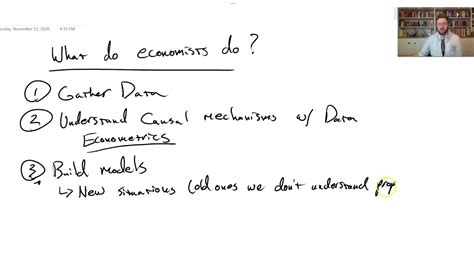 rsday, November 12, 2020 4:33 PM
What do economists do?
① Gather Data
② Understand Causal mechanisms w/ Data
Econometrics
③ Build models
↳ New situations (old ones we don't understand prop